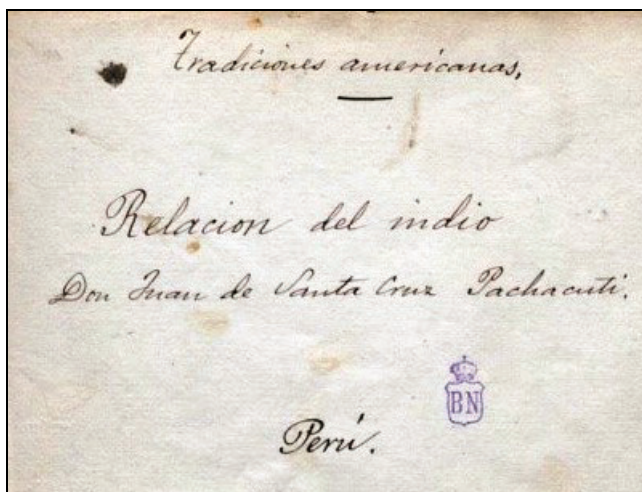 Tradiciones americanas,
Relacion del indio
Don Juan de Santa Cruz Pachacuti.
BN
Perú.